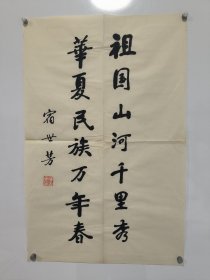 祖国山河千里秀
華夏民族万年春
宿世芳